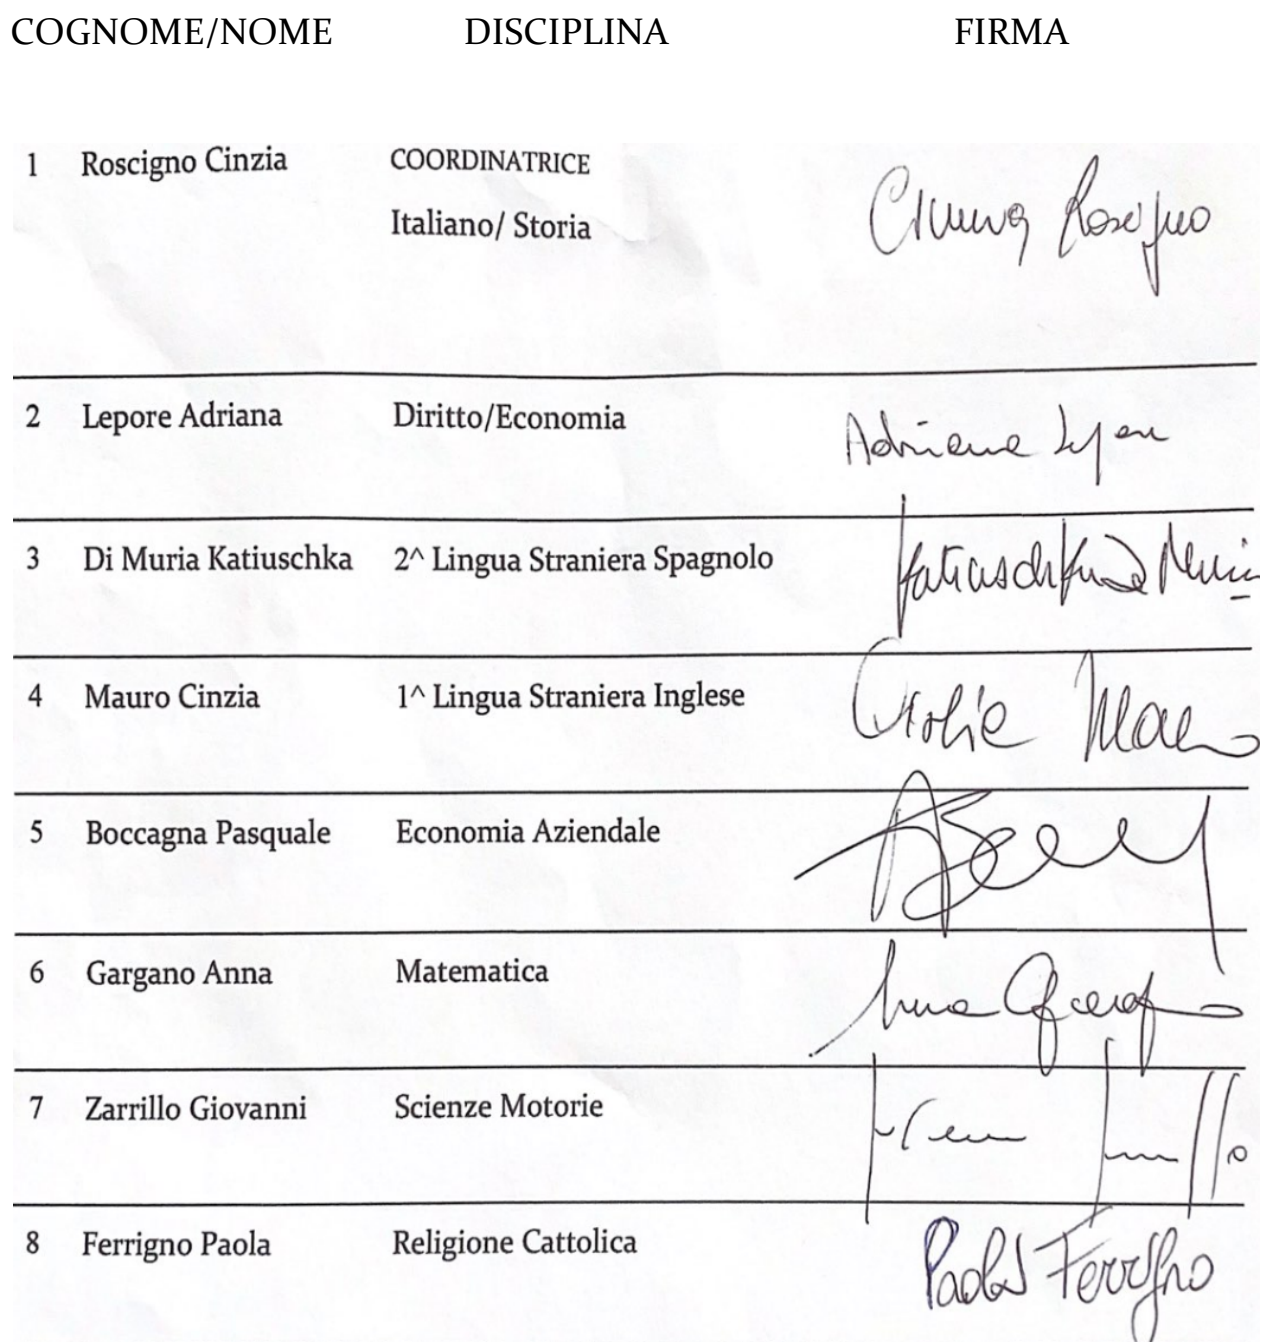 COGNOME/NOME DISCIPLINA FIRMA
1 Roscigno Cinzia COORDINATRICE
Italiano/ Storia
2 Lepore Adriana Diritto/Economia
3 Di Muria Katiuschka 2^ Lingua Straniera Spagnolo
4 Mauro Cinzia 1^ Lingua Straniera Inglese
5 Boccagna Pasquale Economia Aziendale
6 Gargano Anna Matematica
7 Zarrillo Giovanni Scienze Motorie
8 Ferrigno Paola Religione Cattolica Paola Ferrigno